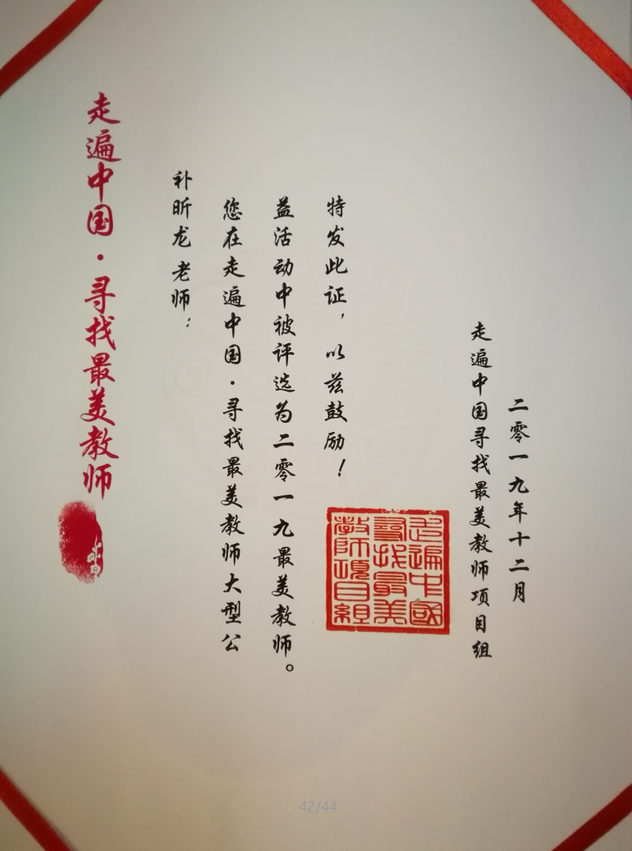 走遍中国·寻找最美教师
补昕龙 老师：
您在走遍中国·寻找最美教师大型公
益活动中被评选为二零一九最美教师。
特发此证，以兹鼓励！
走遍中国寻找最美教师项目组
二零一九年十二月
走遍中國
尋找最美
教師項目組
42/44